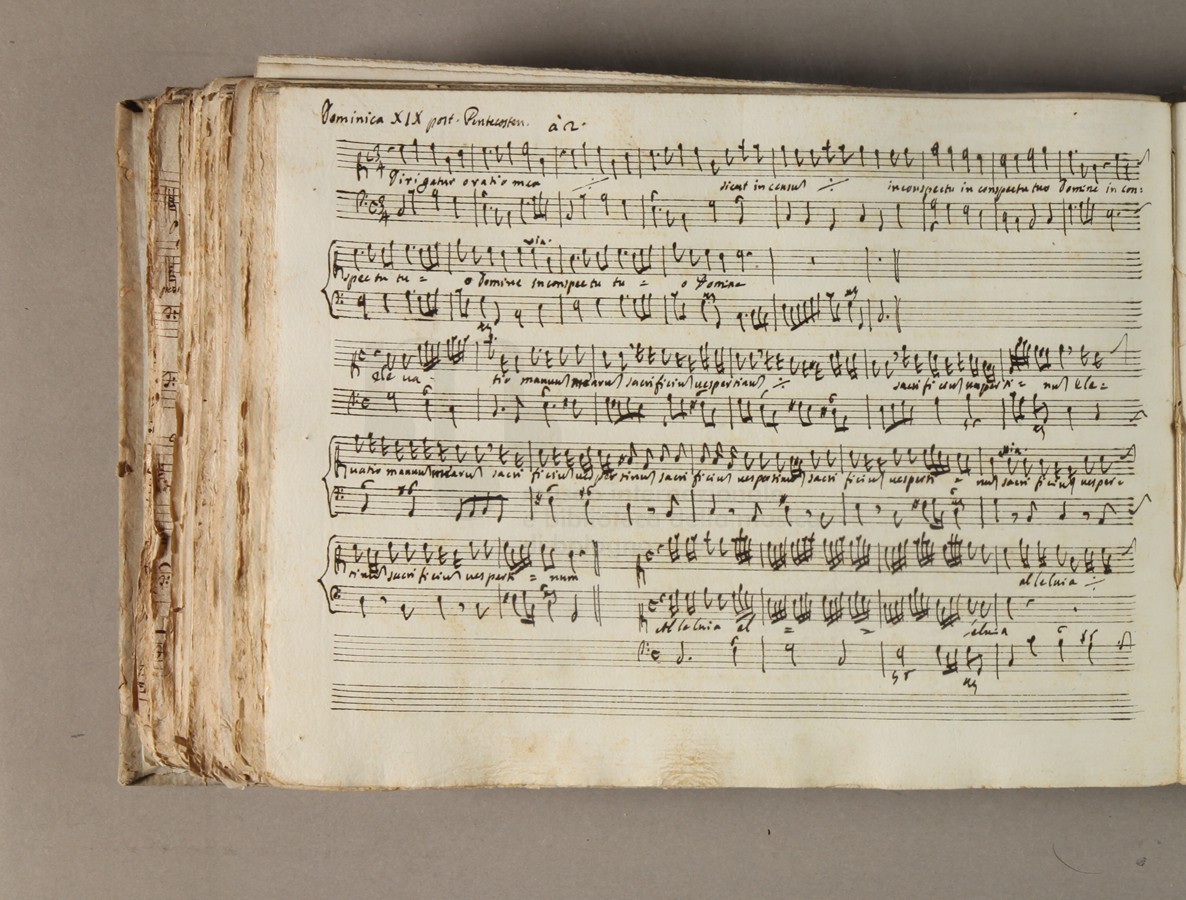 Dominica XIX post. Pentecosten. à 2.
Dirigatur oratio mea ·/· sicut incensũ ·/· inconspectu in conspectu tuo Domine in con:
spectu tu = o Domine inconspectu tu = o Domine
Eleva = tio manuũ mearũ sacrificiũ vespertinũ ·/· sacrificiũ vesperti = nũ Ele =
vatio manuũ mearũ sacrificiũ vespertinũ sacrificiũ vespertinũ sacrificiũ vesperti = nũ sacrificiũ vesper =
tinũ sacrificiũ vesperti = num
alleluia ·/·
Alleluia al = = eluia